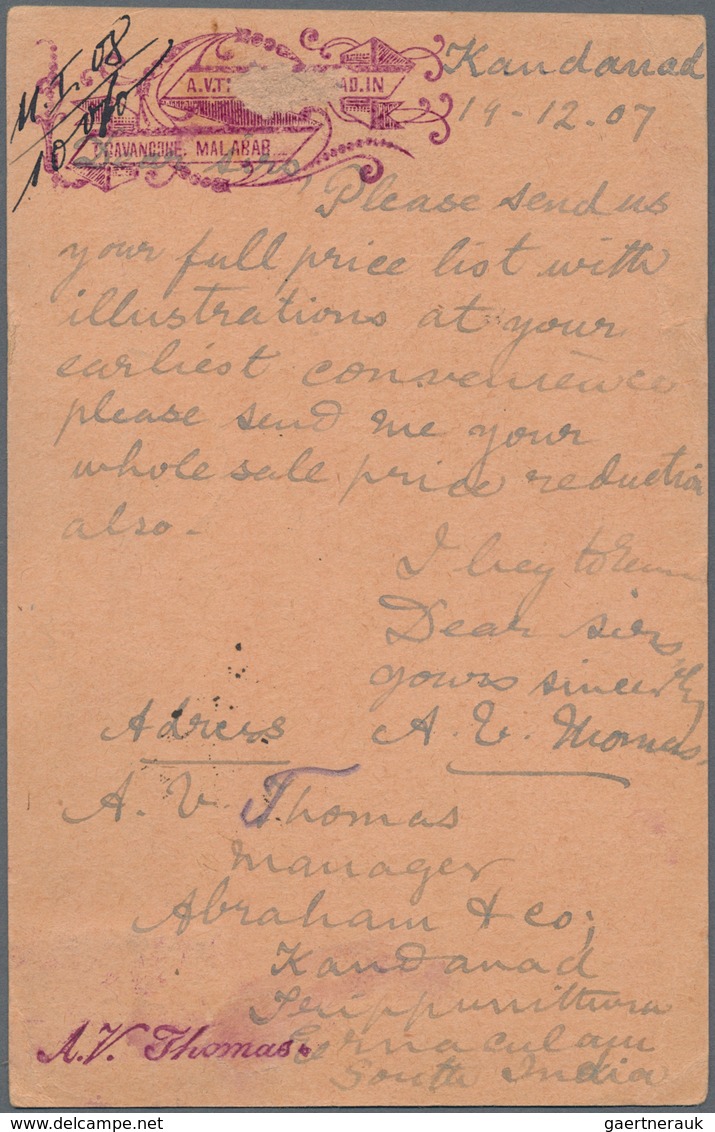 11.I.08
10
A.V.T
AD.IN
TRAVANCORE. MALABAR
Kandanad
19-12.07
Dear sirs,
Please send us
your full price list with
illustrations at your
earliest convenience
please send me your
whole sale price reduction
also.
I beg to
Dear sirs,
yours sincerely
A. V. Thomas.
Adress
A. V. Thomas
Manager
Abraham & co;
Kandanad
Trippunittura
Ernaculam
South India
A.V. Thomas.
gaertnerauk